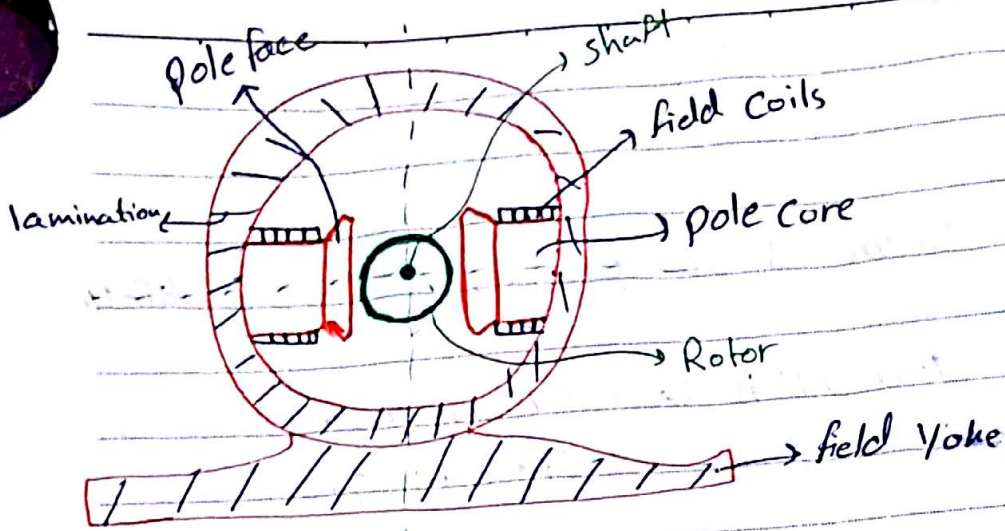 pole face
shaft
field coils
lamination
pole core
Rotor
field yoke